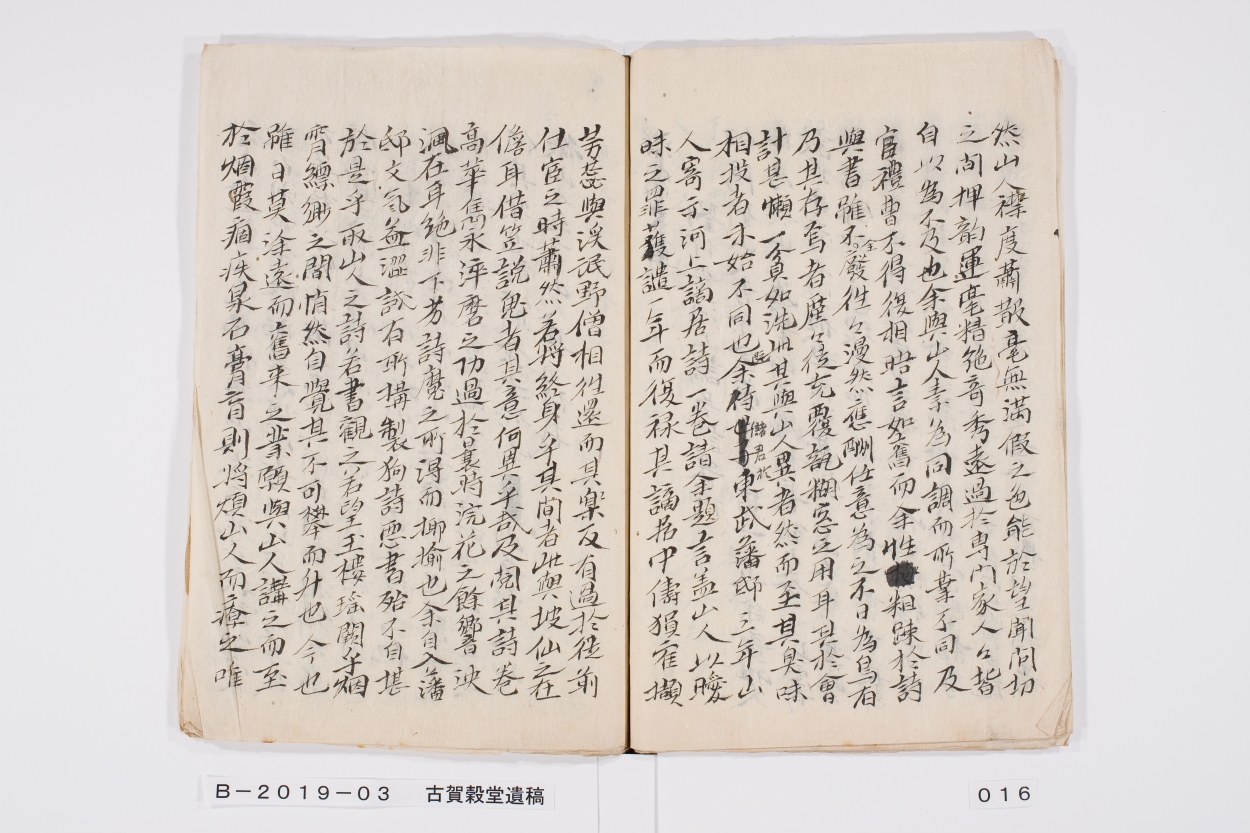 然山人襟度蕭散毫無滿假之色能於望聞問切
之間押韵運毫精絶奇秀遠過於專門家人々皆
自以為不及也余與山人素為同調而所業不同及
官禮曹不得復相晤言如舊而余性粗踈於詩
與書雖不全廢徃々漫然應酬任意為之不日為烏有
乃其存焉者塵々徒充覆瓿糊窓之用耳其於會
計甚懶一貧如洗此其與山人異者然而至其臭味
相投者亦始不同也余侍儲君於東武藩邸三年山
人寄示河上謫居詩一卷請余題言盖山人以曖
昧之罪獲譴一年而復禄其謫居中儔猨隺擷
芳蕊與溪氓野僧相徃還而其樂反有過於從前
仕宦之時蕭然若將終身乎其間者此與坡仙之在
儋耳借笠説鬼者其意何異乎哉及閲其詩巻
高華雋永淬磨之功過於曩時浣花之餘響泱
渢在耳絶非下劣詩魔之所得而揶揄也余自入藩
邸文氣益澀詠有所搆製狗詩惡書殆不自堪
於是乎取山人之詩若書觀之若望玉樓瑤闕乎烟
霄縹緲之間悄然自覺其不可攀而升也今也
雖日莫涂遠而奮來之業願與山人講之而至
於烟霞痼疾泉石膏肓則將煩山人而療之唯
B－2019－03　古賀穀堂遺稿
016